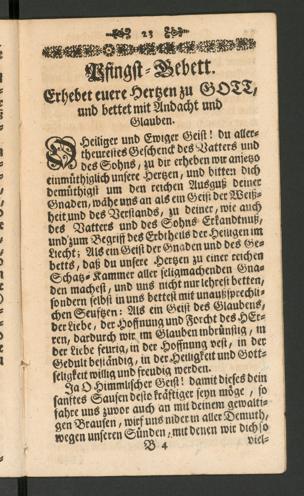 23
Pfingst-Gebett.
Erhebet euere Hertzen zu GOTT,
und bettet mit Andacht und
Glauben.
O Heiliger und Ewiger Geist! du aller-
theurestes Geschenck des Vatters und
des Sohns, zu dir erheben wir anjetzo
einmüthiglich unsere Hertzen, und bitten dich
demüthigst um den reichen Ausguß deiner
Gnaden, wähe uns an als ein Geist der Weiß-
heit und des Verstands, zu deiner, wie auch
des Vatters und des Sohns Erkandtnuß,
und zum Begriff des Erbtheils der Heiligen im
Liecht; Als ein Geist der Gnaden und des Ge-
betts, daß du unsere Hertzen zu einer reichen
Schatz-Kammer aller seligmachenden Gna-
den machest, und uns nicht nur lehrest betten,
sondern selbst in uns bettest mit unaußsprechli-
chen Seufftzen: Als ein Geist des Glaubens,
der Liebe, der Hoffnung und Forcht des HEr-
ren, dardurch wir im Glauben inbrünstig, in
der Liebe feurig, in der Hoffnung vest, in der
Gedult beständig, in der Heiligkeit und Gott-
seligkeit willig und freudig werden.
Ja O Himmlischer Geist! damit dieses dein
sanfftes Sausen desto kräfftiger seyn möge, so
fahre uns zuvor auch an mit deinem gewalti-
gen Brausen, wirf uns nider in aller Demuth,
wegen unseren Sünden, mit denen wir dich so
B 4
viel-